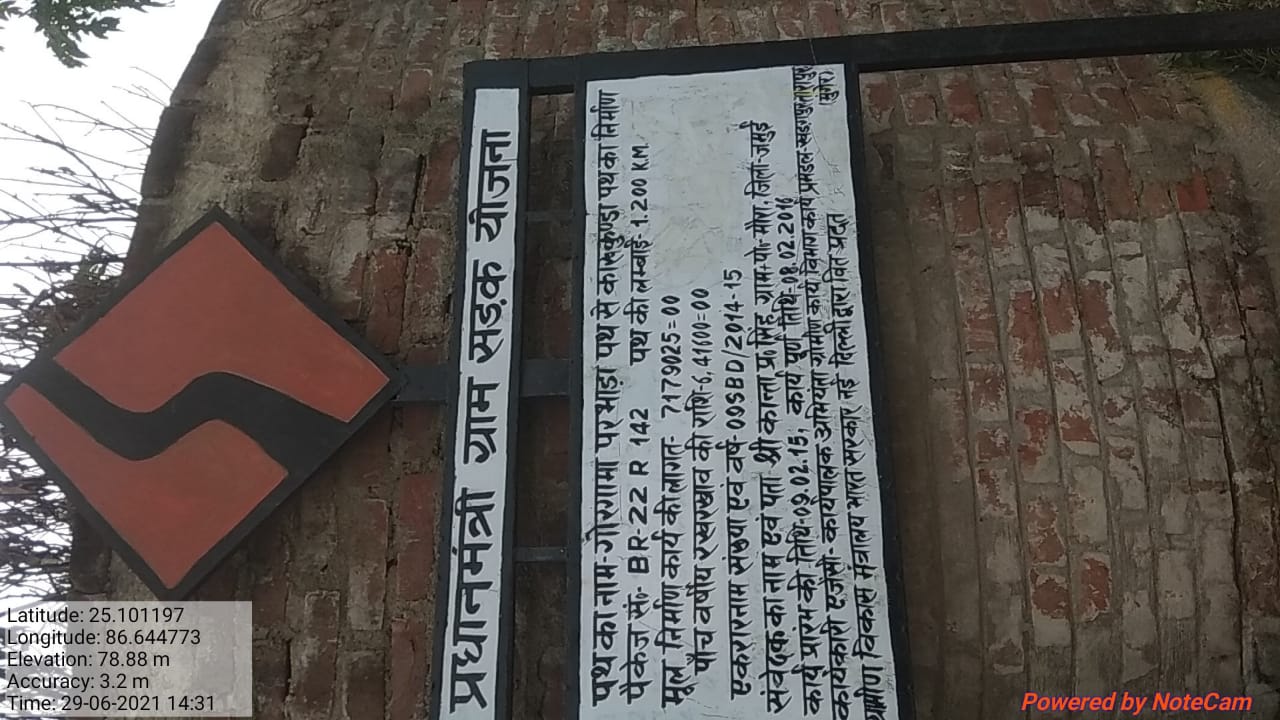 प्रधानमंत्री ग्राम सड़क योजना
पथ का नाम-गोरगामा परभाड़ा पथ से कासकुण्डा पथ का निर्माण
पैकेज सं:- BR-22 R 142 पथ की लम्बाई- 1.200 K.M.
मूल निर्माण कार्य की लागत- 7179025=00
पाँच वर्षीय रखरखाव की राशि-6,41600=00
एकरारनाम संख्या एवं वर्ष- 09SBD/2014-15
संवेदक का नाम एवं पता श्री काला प्र० सिंह, ग्राम+पो०- मौरा, जिला-जमुई
कार्य प्रारंभ की तिथि-09.02.15, कार्य पूर्ण तिथि-08.02.2016
कार्यकारी एजेंसी- कार्यपालक अभियंता ग्रामीण कार्य विभाग कार्य प्रमंडल-खड़गपुर,तारापुर
(मुंगेर)
ग्रामीण विकास मंत्रालय भारत सरकार नई दिल्ली द्वारा वित प्रदत
Latitude: 25.101197
Longitude: 86.644773
Elevation: 78.88 m
Accuracy: 3.2 m
Time: 29-06-2021 14:31
Powered by NoteCam